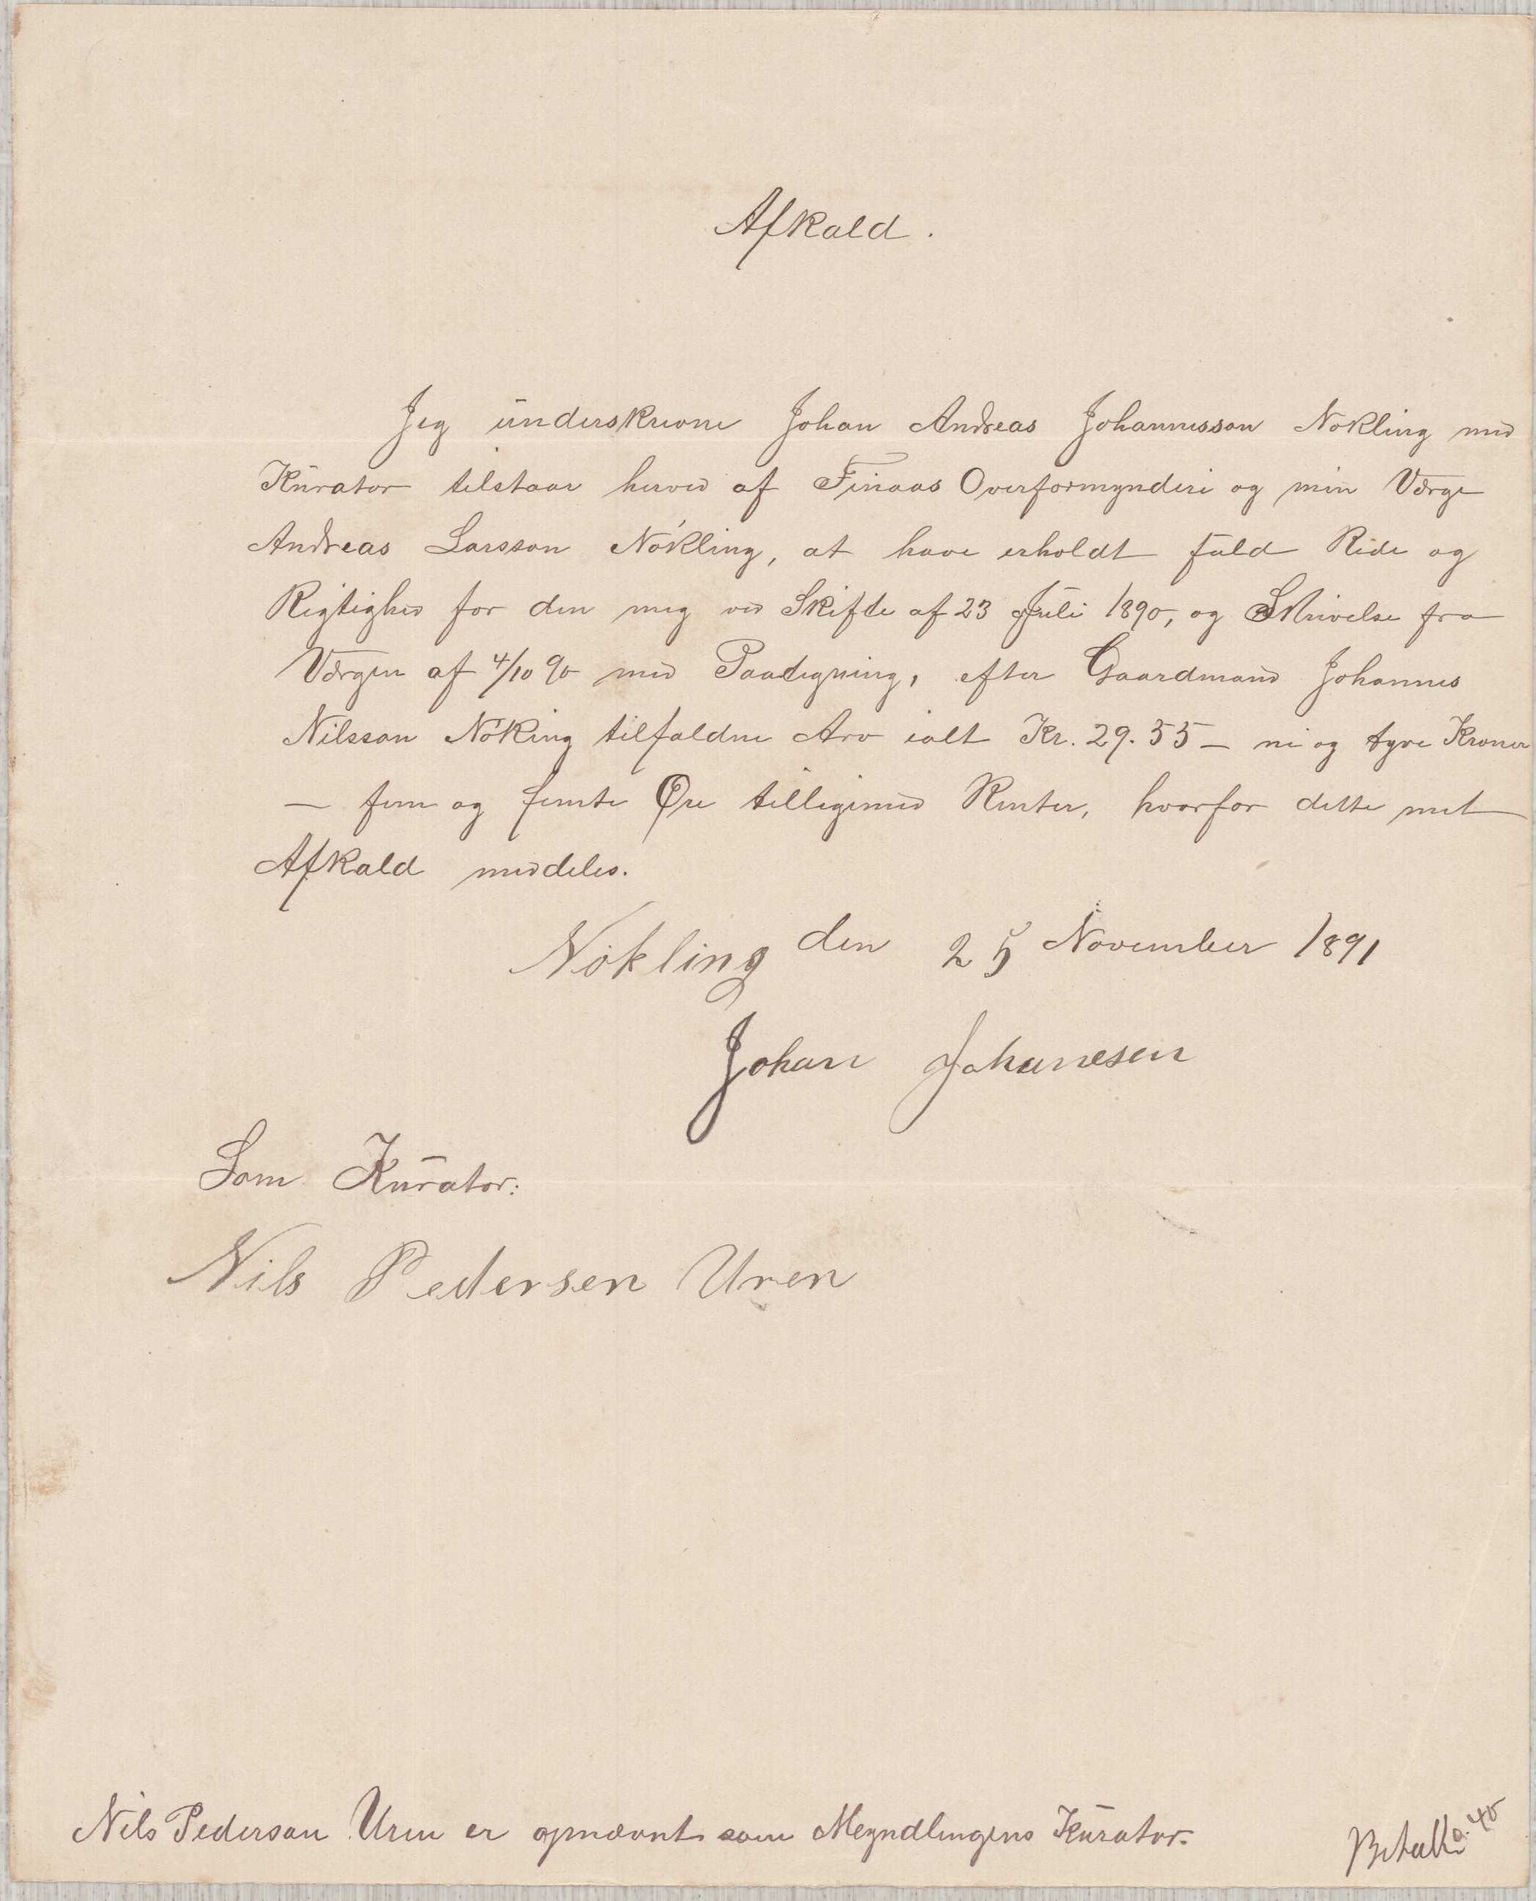 Afkald.
Jeg underskrevne Johan Andreas Johannesson Nøkling med
Kurator tilstaar herved af Finaas Overformynderi og min Værge
Andreas Larsson Nøkling, at have erholdt fuld Rede og
Rigtighed for den mig ved Skifte af 23 Juli 1890, og Skrivelse fra
Værgen af 4/10 90 med Paategning, efter Gaardmand Johannes
Nilsson Nøking tilfaldne Arv ialt Kr. 29.55 — ni og tyve Kroner
— fem og femti Øre tilligemed Renter, hvorfor dette mit
Afkald meddeles.
Nökling den 25 November 1891
Johan Johanesen
Som Kurator:
Nils Pedersen Uren
Nils Pederson Uren er opnævnt som Myndlingens Kurator.
Betalt 0.40